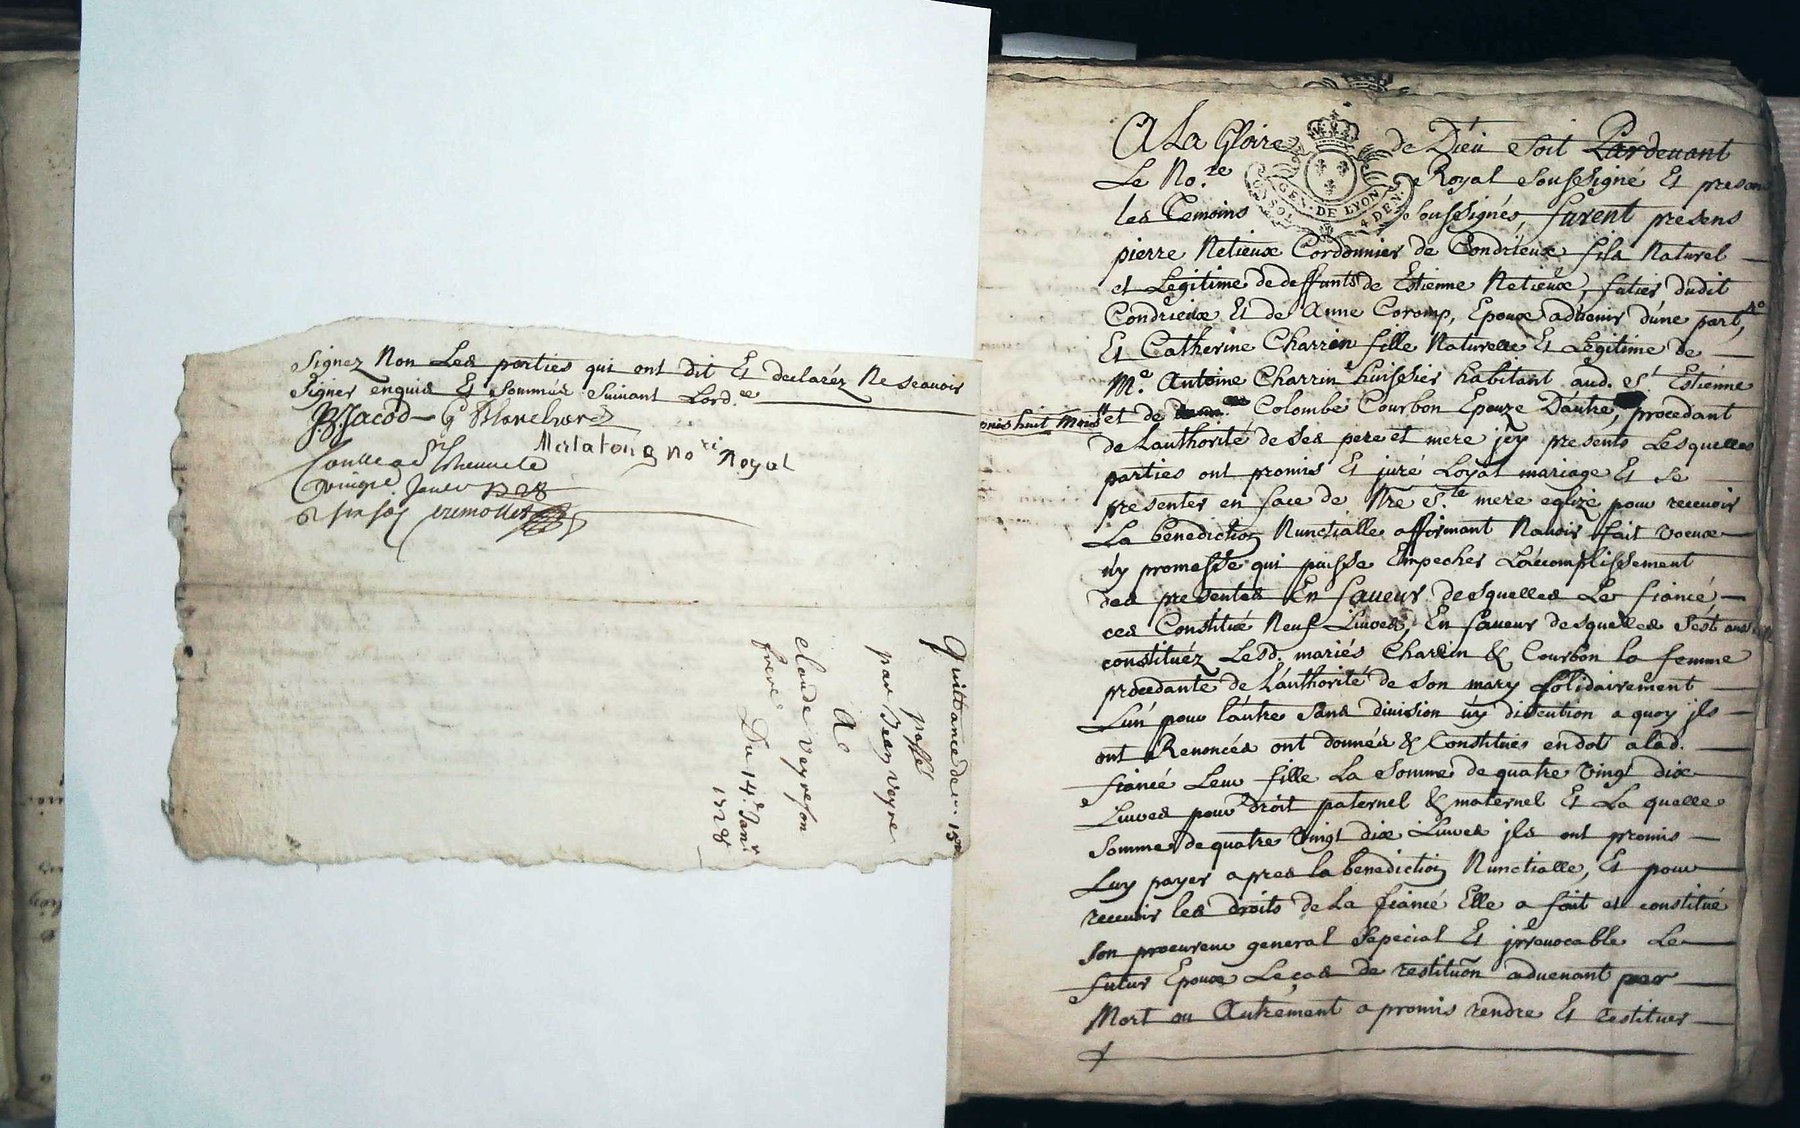 Signez Non Les parties qui ont dit Et declaréz Ne Scauoir
Signer enquis Et Sommés Suivant Lord.ce
J.B. Jacod Blanchard
Matalong no.re Royal
Controllé
Januier 1728
Quittance de 15
passé
par Jean veyre
A
claude veyre son
frere Du 14.e Janr
1728
A La Gloire de Diéu Soit Pardeuant
Le No.re Royal Soussigné Et presen
les Temoins Soussignés, furent presens
GEN. DE LYON
SOL 4 DEN.
pierre Netieux Cordonnier de Condrieux fils Naturel
et Légitime de deffunts de Estienne Netieux, futier dudit
Condrieux Et de Anne Coromp, Epoux aduenir dúne part,
Et Catherine Charrin fille Naturelle Et Légitime de
M.e Antoine Charrin huissier habitant aud. St Estienne
et de Colombe Courbon Epouze D'autre, procedant
de Lauthorité de Ses pere et mere jcy presents Lesquelles
parties ont promis Et juré Loyal mariage Et Se
presenter en face de N're S.te mere eglize pour receuoir
La benediction Nunctialle affirmant Nauoir fait voeux
ny promesse qui puisse Empecher L'accomplissement
des presentes En faueur desquelles Le fiancé
ces Constitué Neuf Liures, En faueur desquelles Sest aussy
constituéz Lesd. mariés Charrin & Courbon la femme
procedante de L'authorité de Son mary Solidairement
Lun pour lautre Sans diuision ny disention a quoy jls
ont Renoncés ont donnés & Constitués en dot a lad.
fiancé Leur fille La Somme de quatre vingt dix
Liures pour Droit paternel & maternel Et La quelle
Somme de quatre vingt dix Liures jls ont promis
Luy payer apres la benediction Nunctialle, Et pour
receuoir les droits de La fiancé Elle a fait et constitué
Son procureur general Special Et jrreuocable Le
futur Epoux Le cas de restituon aduenant par
Mort ou Autrement a promis rendre Et restituer